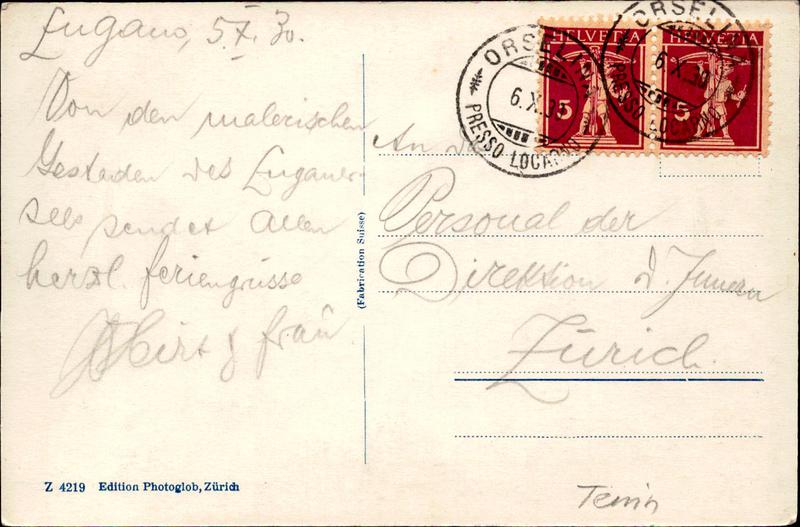 Lugano, 5.X.30.
Von den malerischen
Gestaden des Luganer-
sees sendet Allen
herzl. Feriengrüsse
Hirt & Frau
Z 4219 Edition Photoglob, Zürich
(Fabrication Suisse)
ORSELINA
6.X.30
PRESSO LOCARNO
ORSELINA
6.X.30
PRESSO LOCARNO
HELVETIA
5
HELVETIA
5
An das
Personal der
Direktion d. Innern
Zürich.